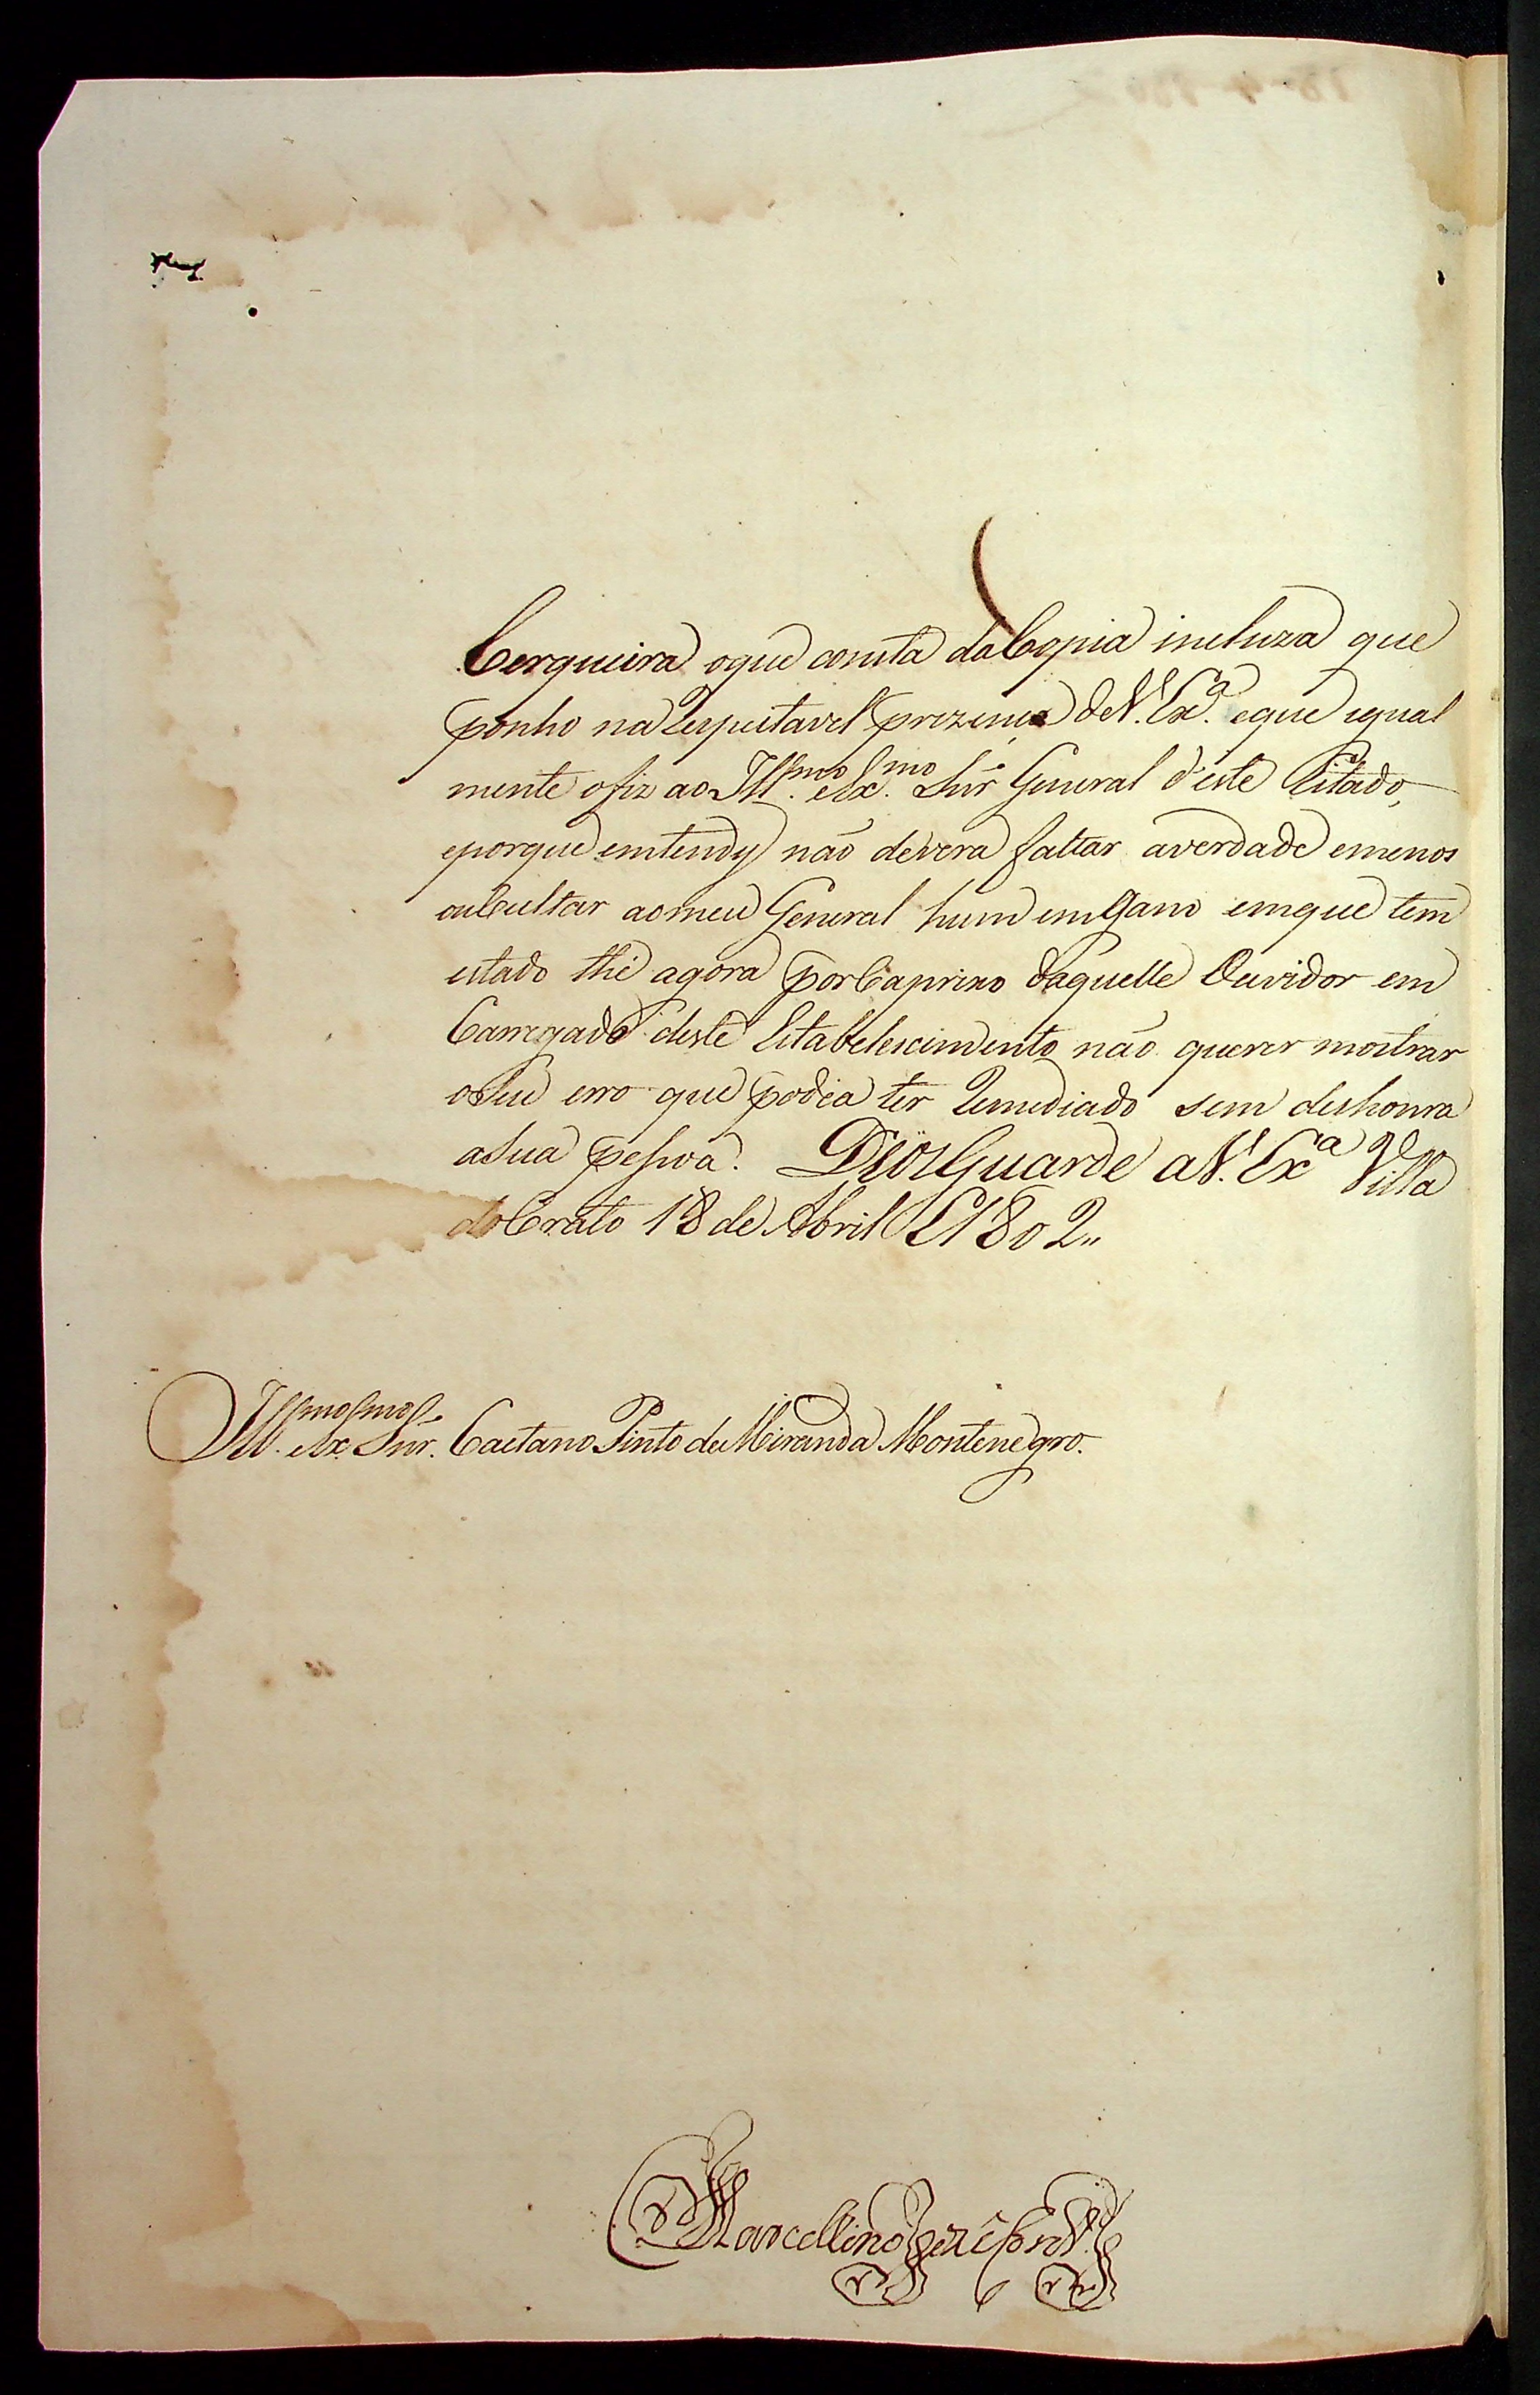 Cerqueira oque consta da Copia incluza que
ponho na Respeitavel prezença de V. Ex.ª eque igual
mente ofiz ao Ill.mo eEx.mo Snr General d'este Estado,
eporque emtendy não devera faltar averdade emenos
ocCultar aomeu General hum emgano emque tem
estado thé agora por Caprixo daquelle Ouvidor em
Carregado deste Estabelescimento não querer mostrar
oSeu erro que podia ter Remediado sem deshonra
aSua pessoa. Deos Guarde a V. Ex.ª Villa
do Crato 18 de Abril E1802"
Ill.mo eEx.mo Snr. Caetano Pinto de Miranda Montenegro.
Marcellino Jozé Cord.